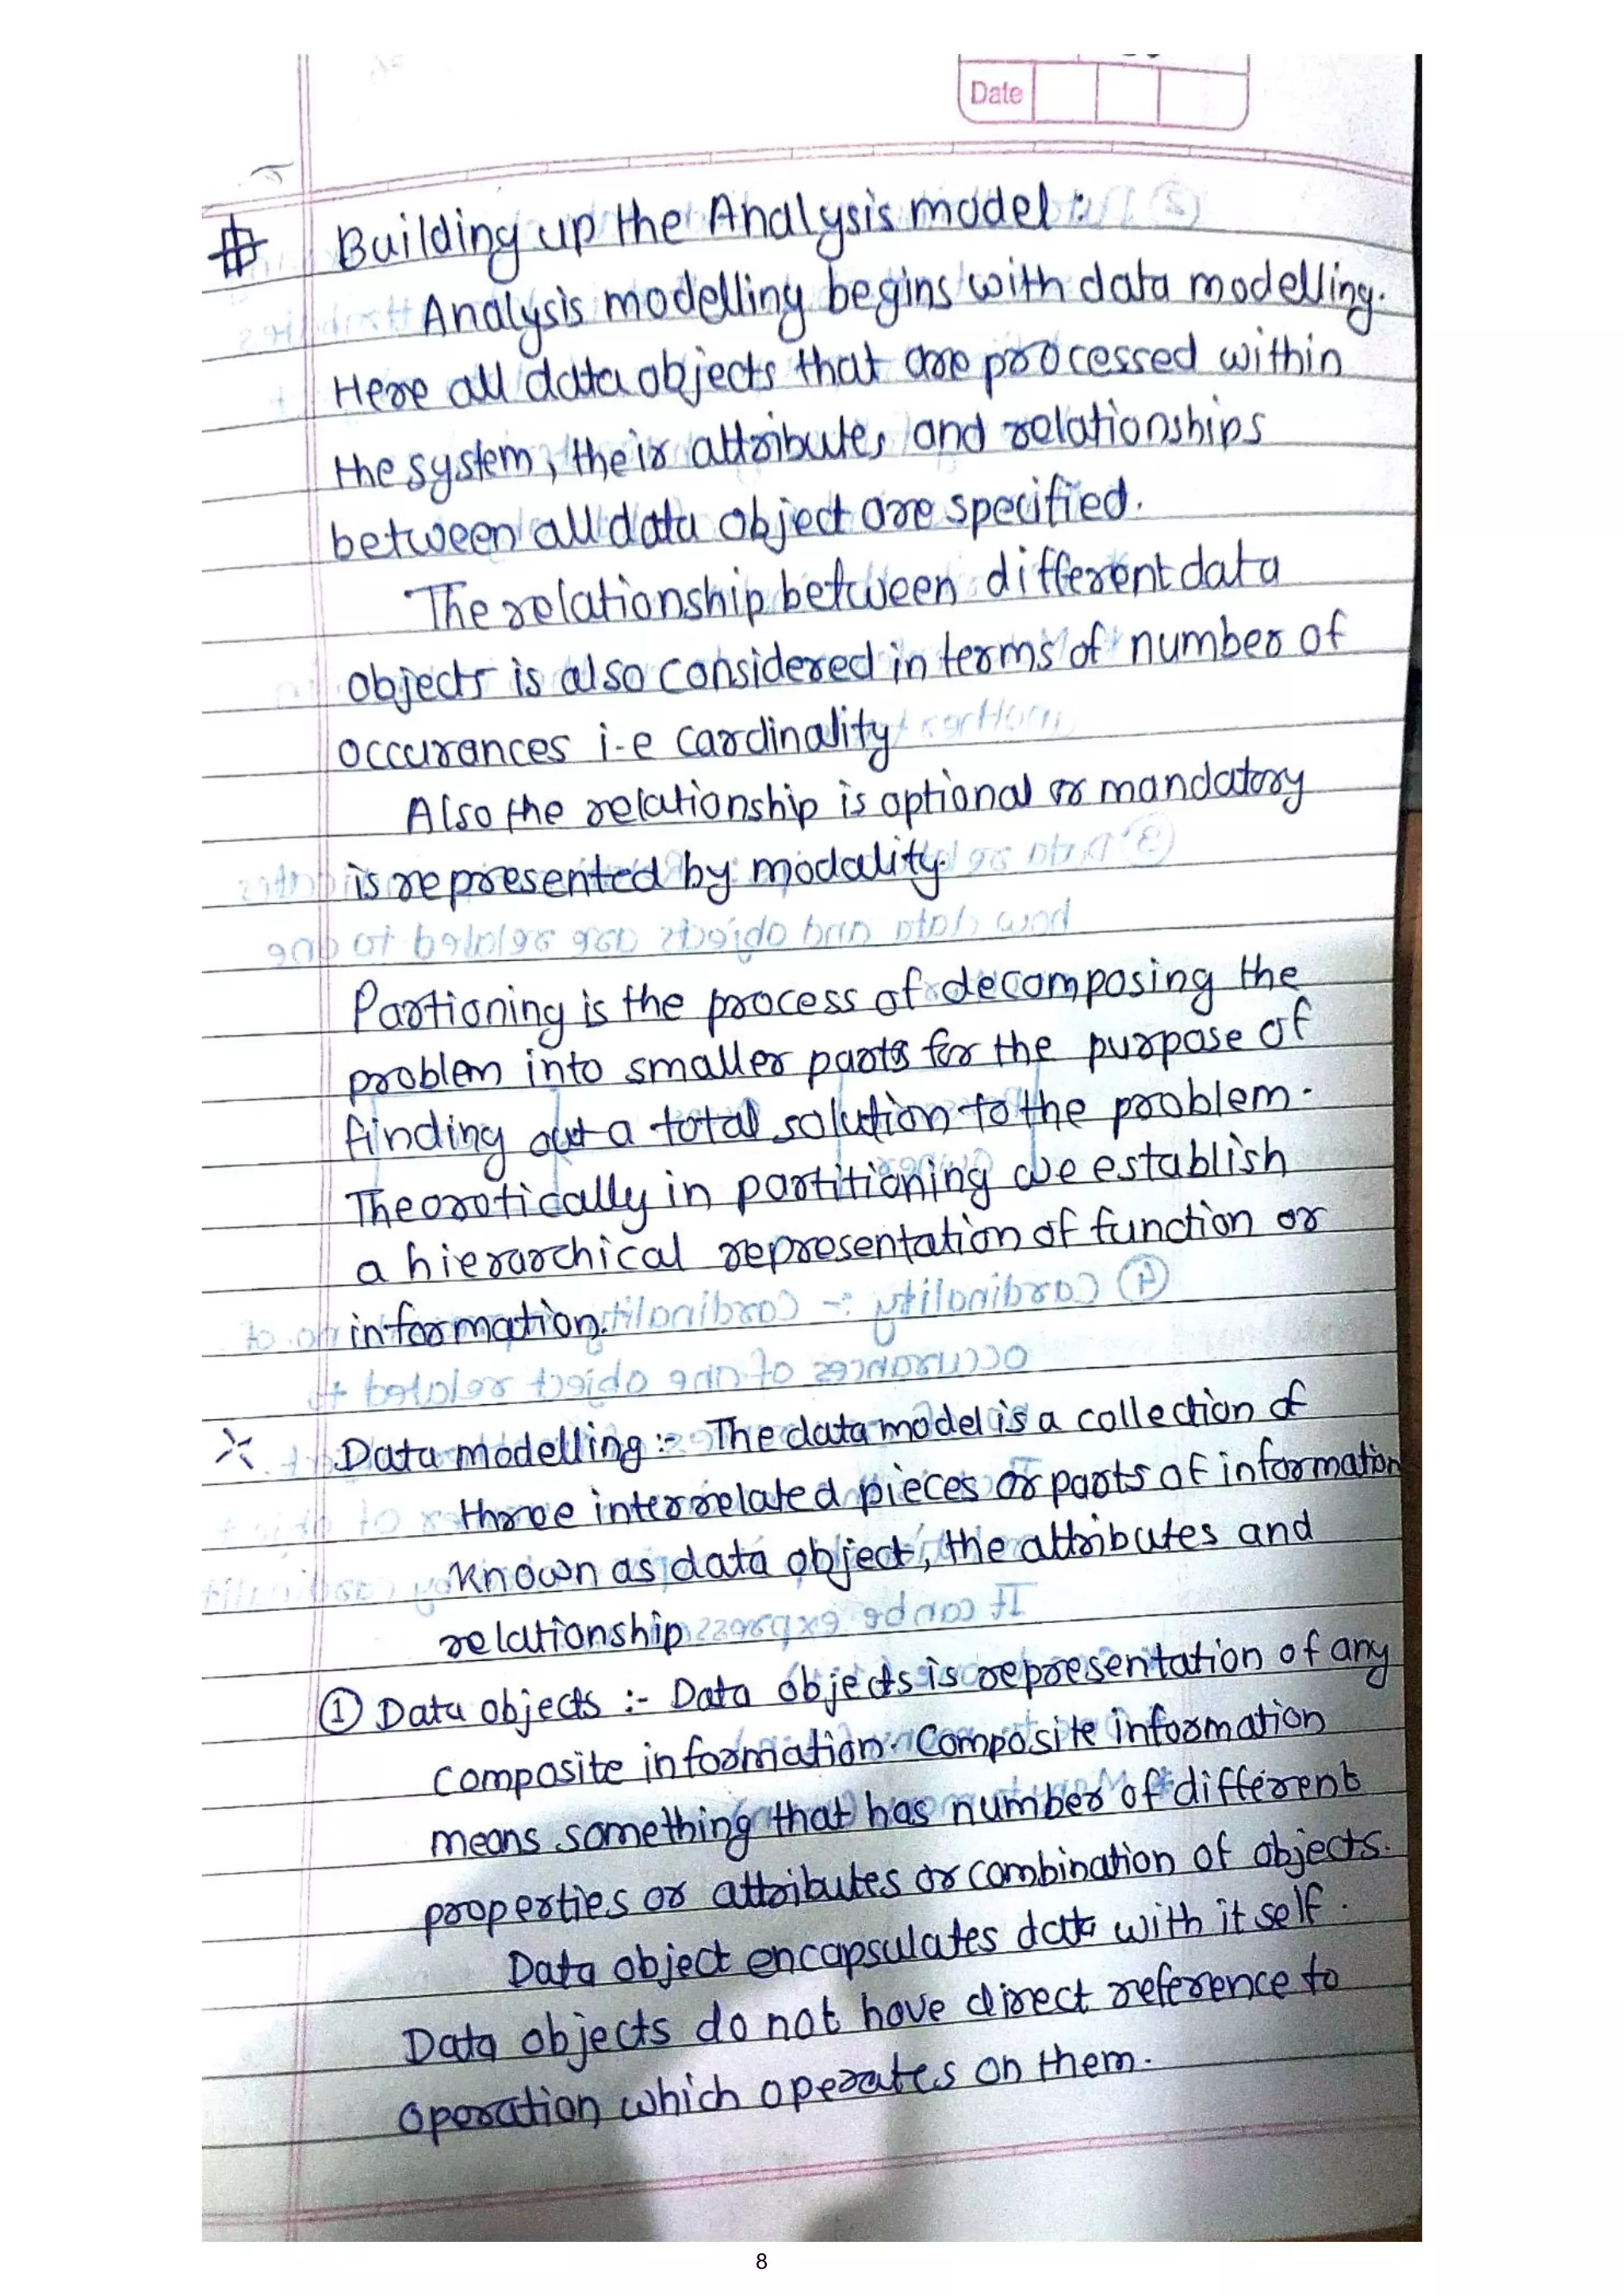 Date
# Building up the Analysis model :
Analysis modelling begins with data modelling.
Here all data objects that are processed within
the system, their attributes and relationships
between all data object are specified.
The relationship between different data
objects is also considered in terms of number of
occurances i-e cardinality
Also the relationship is optional or mandatory
is represented by modality.
Partioning is the process of decomposing the
problem into smaller parts for the purpose of
finding out a total solution to the problem.
Theorotically in partitioning we establish
a hierarchical representation of function or
information.
Data modelling :- The data model is a collection of
three interrelated pieces or parts of information
known as data object, the attributes and
relationship
① Data objects :- Data objects is representation of any
composite information. Composite information
means something that has number of different
properties or attributes or combination of objects.
Data object encapsulates data with it self.
Data objects do not have direct reference to
operation which operates on them.
8